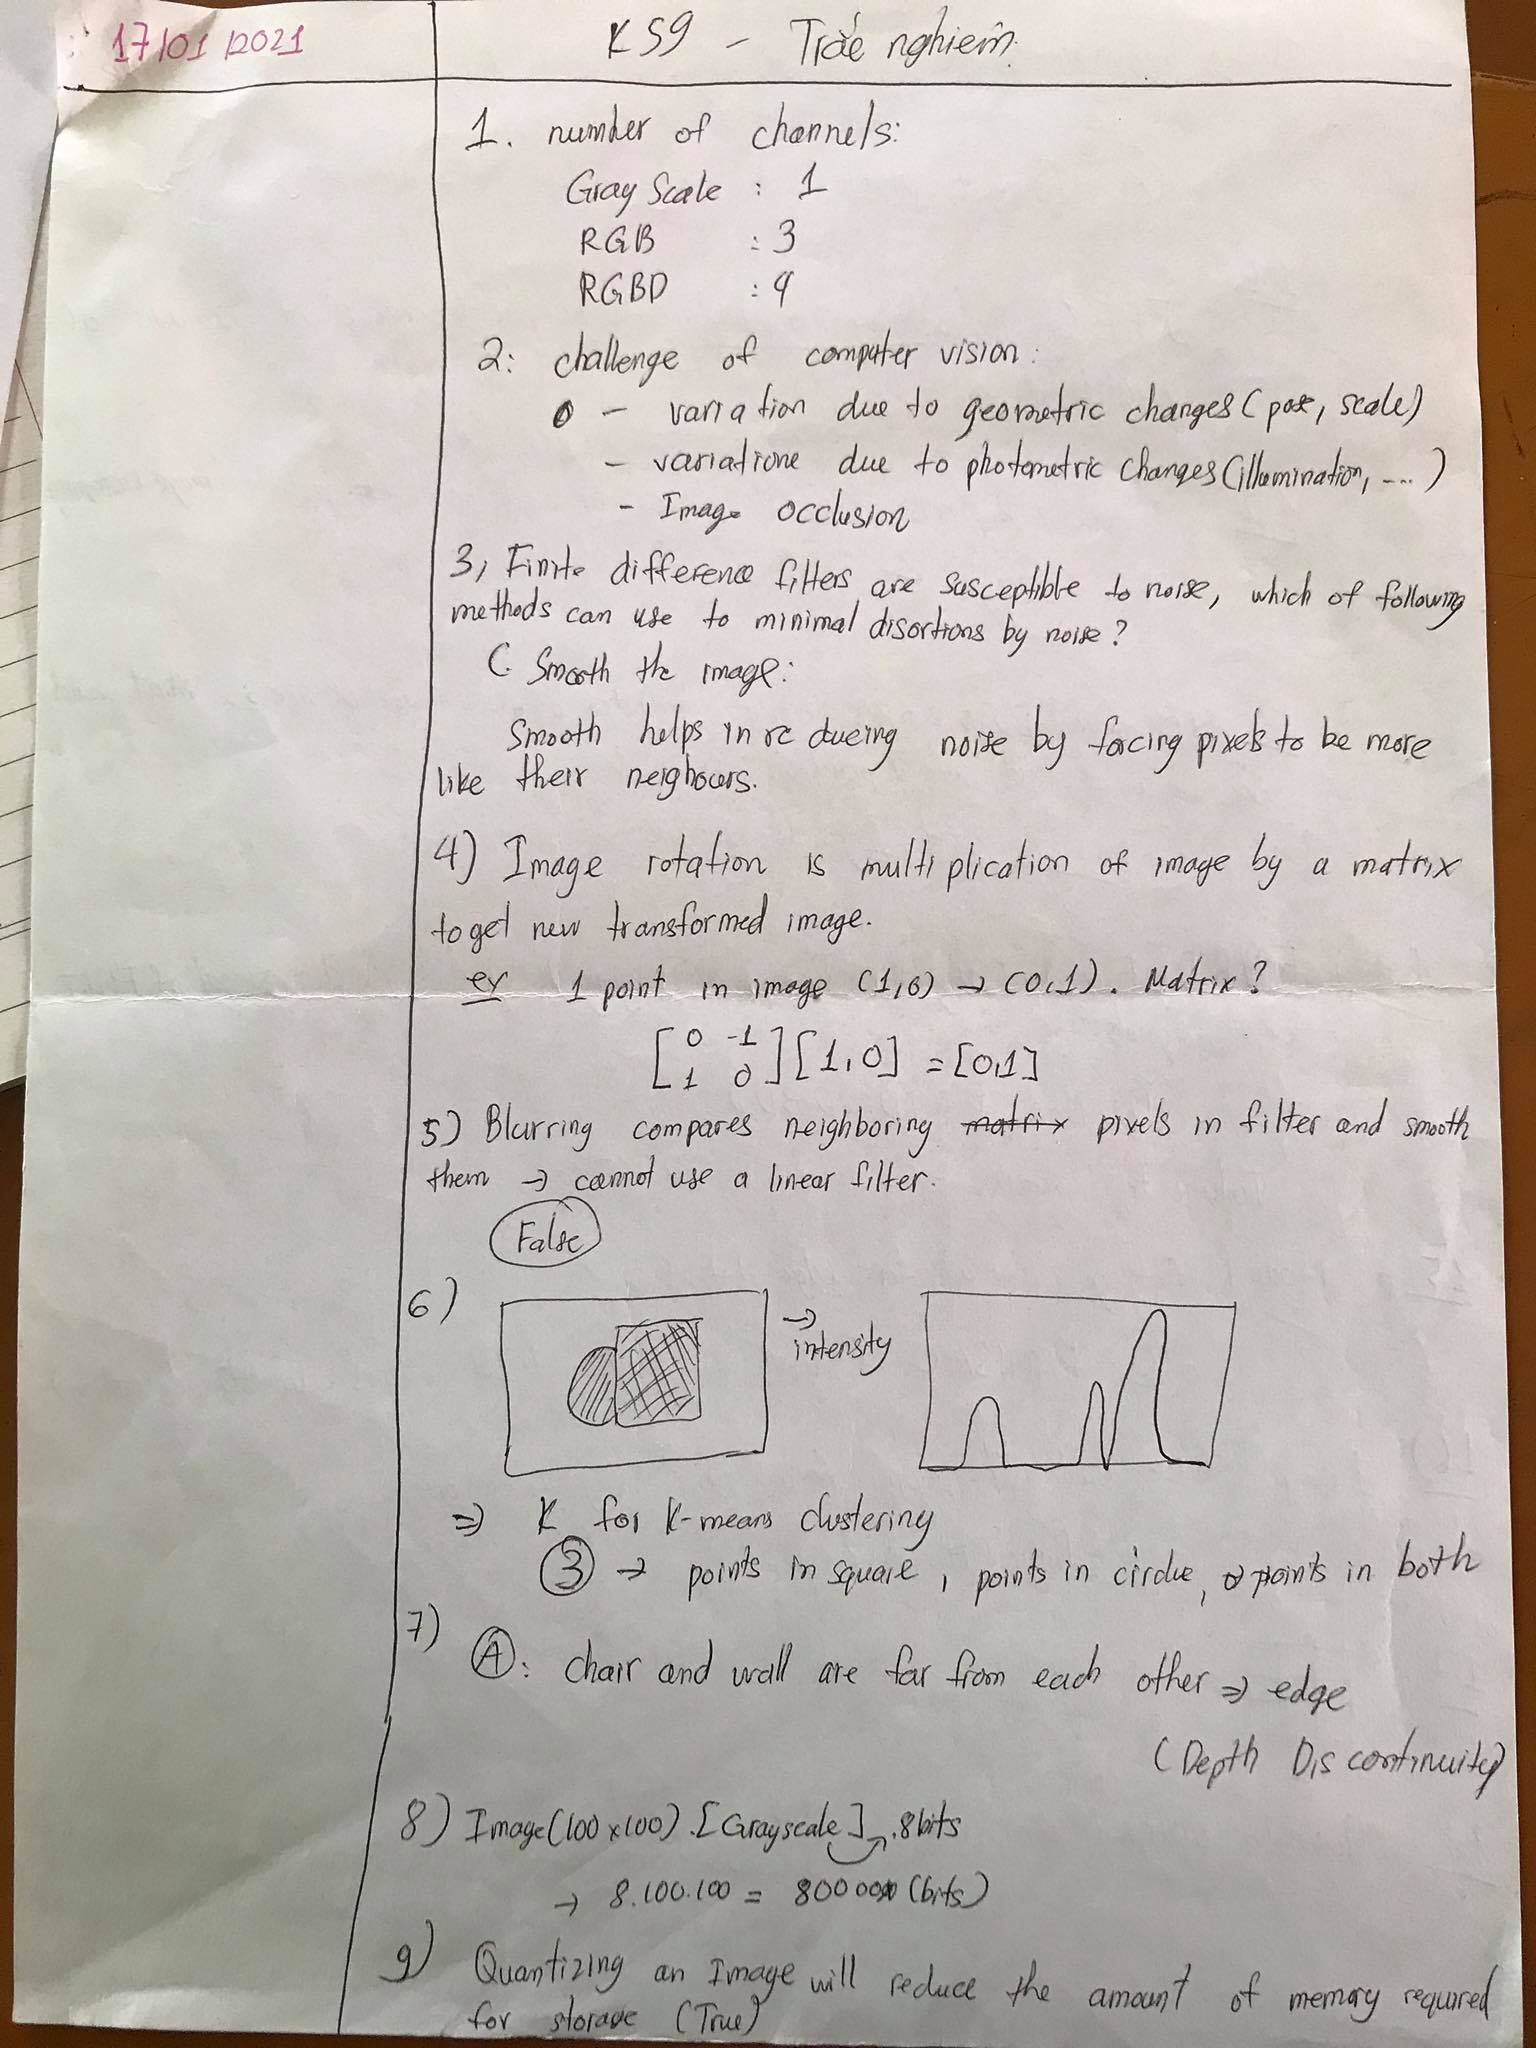 17/01/2021
K59 - Trắc nghiệm
1. number of channels:
Gray Scale : 1
RGB : 3
RGBD : 4
2: challenge of computer vision:
- variation due to geometric changes (pose, scale)
- variatione due to photometric changes (illumination, ....)
- Image occlusion
3, Finite difference filters are susceptible to noise, which of following
methods can use to minimal disortions by noise?
C. Smooth the image:
Smooth helps in reducing noise by forcing pixels to be more
like their neighours.
4) Image rotation is multiplication of image by a matrix
to get new transformed image.
ex 1 point in image (1,0) → (0,1). Matrix?
[0 -1
1 0] [1,0] = [0,1]
5) Blurring compares neighboring matrix pixels in filter and smooth
them → cannot use a linear filter.
False
6)
→
intensity
⇒ K for K-means clustering
3 → points in square, points in circlue, points in both
7)
A: chair and wall are far from each other ⇒ edge
(Depth Discontinuity)
8) Image (100 x 100) . [Grayscale] . 8 bits
→ 8.100.100 = 80000 (bits)
9) Quantizing an Image will reduce the amount of memory required
for storage (True)